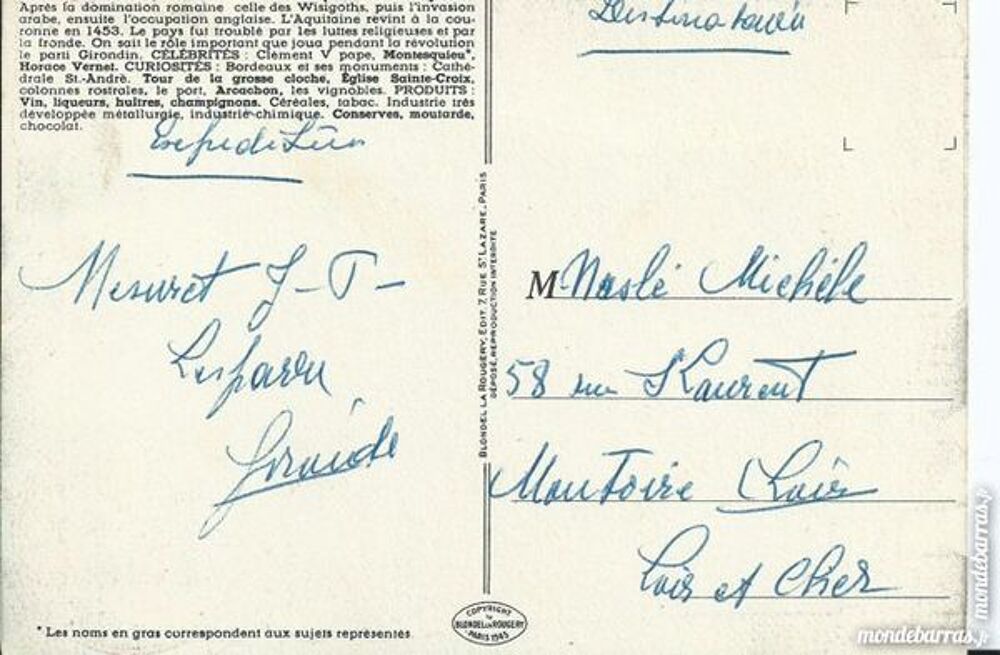 Après la domination romaine celle des Wisigoths, puis l'invasion
arabe, ensuite l'occupation anglaise. L'Aquitaine revint à la cou-
ronne en 1453. Le pays fut troublé par les luttes religieuses et par
la fronde. On sait le rôle important que joua pendant la révolution
le parti Girondin. CÉLÉBRITÉS : Clément V pape, Montesquieu*,
Horace Vernet. CURIOSITÉS : Bordeaux et ses monuments : Cathé-
drale St.-André. Tour de la grosse cloche, Église Sainte-Croix,
colonnes rostrales, le port, Arcachon, les vignobles. PRODUITS :
Vin, liqueurs, huîtres, champignons. Céréales, tabac. Industrie très
développée métallurgie, industrie chimique. Conserves, moutarde,
chocolat.
Expediteur
Mesuret J-T-
Lesparre
Gironde
* Les noms en gras correspondent aux sujets représentés
BLONDEL LA ROUGERY, ÉDIT. 7, RUE ST LAZARE, PARIS
DÉPOSÉ, REPRODUCTION INTERDITE
COPYRIGHT
by
BLONDEL LA ROUGERY
PARIS 1945
Destinataire
M Naslé Michéle
58 rue St Laurent
Montoire s/ Loir
Loir et Cher
mondebarras.fr
mondebarras.fr